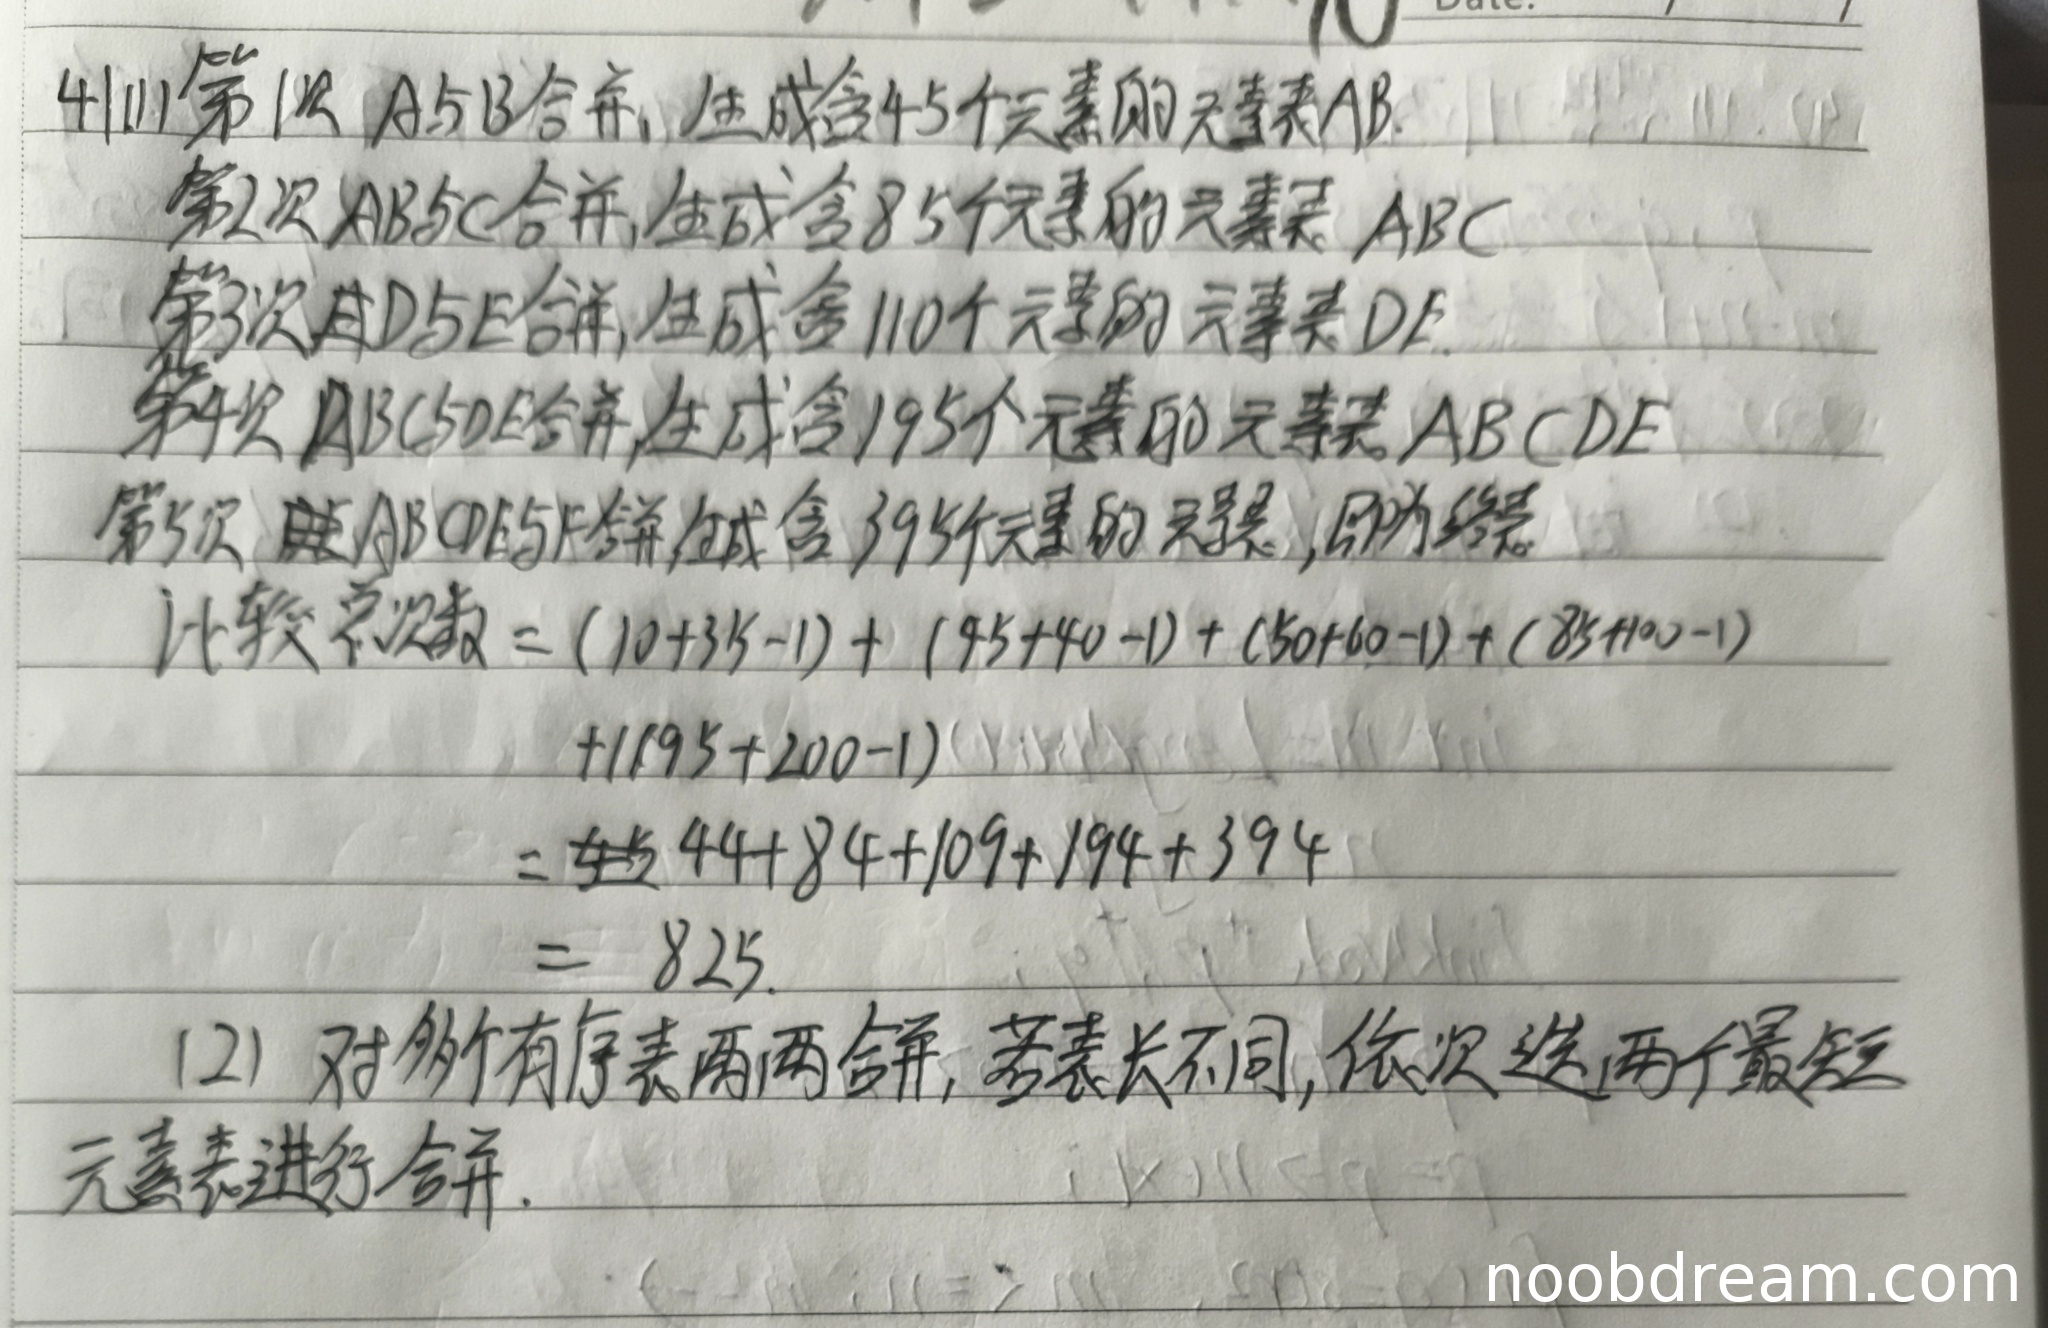 Date:
41(1) 第1次 A与B合并，生成含45个元素的元素表AB.
第2次 AB与C合并，生成含85个元素的元素表 ABC
第3次 D与E合并，生成含110个元素的元素表DE.
第4次 ABC与DE合并，生成含195个元素的元素表 ABCDE
第5次 ABCDE与F合并，生成含395个元素的元素表，即为终表
比较总次数 = (10+35-1) + (45+40-1) + (50+60-1) + (85+100-1)
+(195+200-1)
= 44+84+109+194+394
= 825.
(2) 对多个有序表两两合并，若表长不同，依次选两个最短
元素表进行合并.
noobdream.com